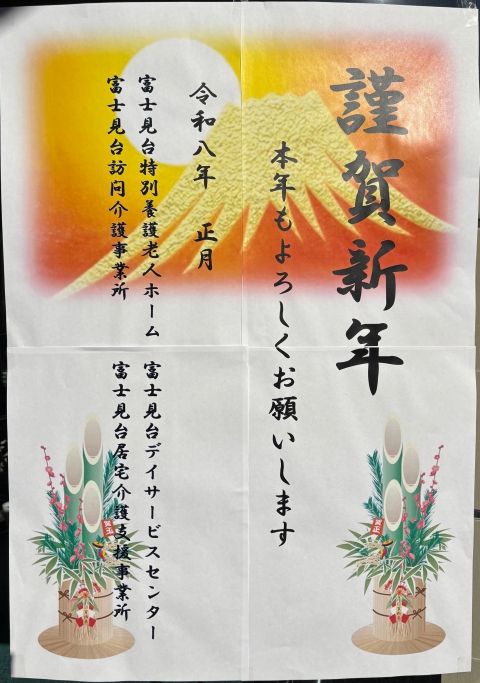 謹賀新年
本年もよろしくお願いします
令和八年　正月
富士見台特別養護老人ホーム
富士見台デイサービスセンター
富士見台訪問介護事業所
富士見台居宅介護支援事業所
賀正
賀正